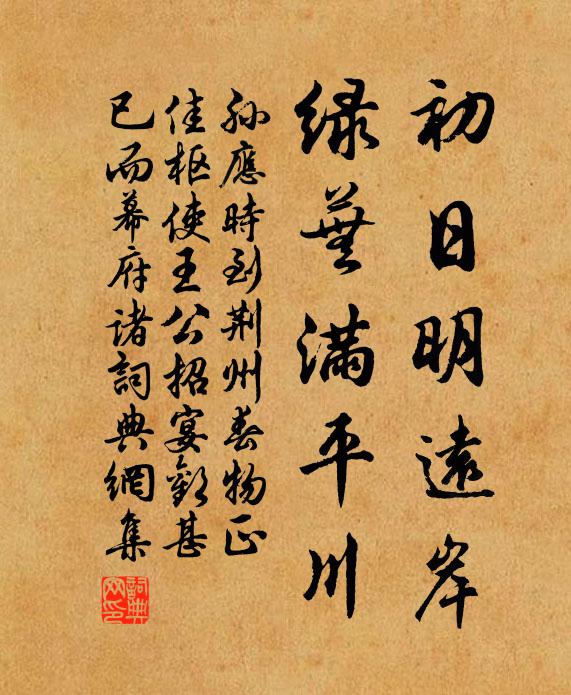 初日明遠岸
綠蕪滿平川
孫應時到荆州春物正
佳枢使王公招宴歡甚
已而幕府诸詞典網集
詞典網印